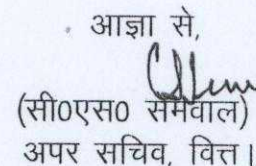 आज्ञा से,
(सी0एस0 सेमवाल)
अपर सचिव, वित्त।